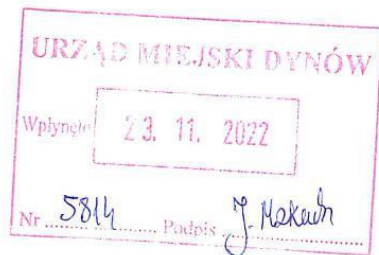 URZĄD MIEJSKI DYNÓW
Wpłynęło 23. 11. 2022
Nr 5814 Podpis J.